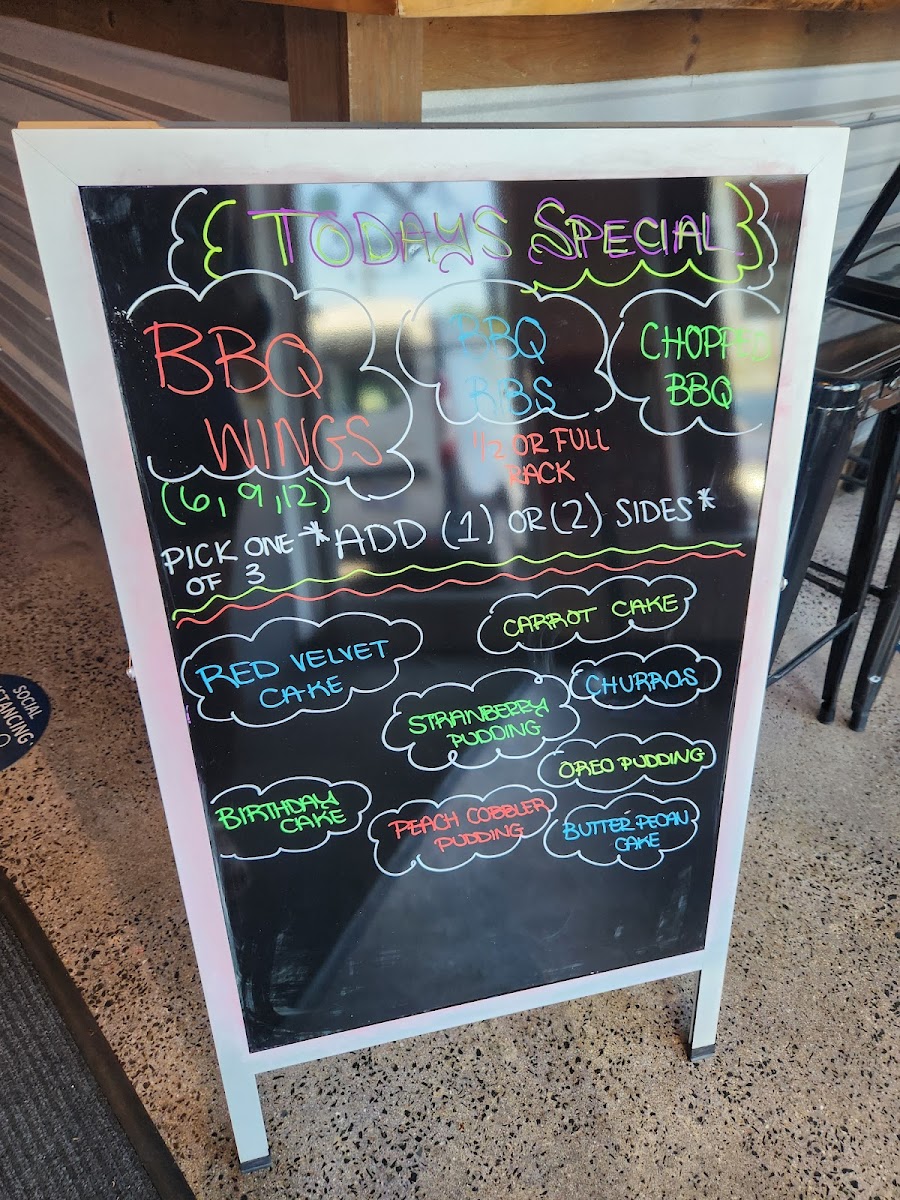 TODAYS SPECIAL
BBQ
WINGS
(6, 9, 12)
BBQ
RIBS
1/2 OR FULL
RACK
CHOPPED
BBQ
PICK ONE
OF 3
*ADD (1) OR (2) SIDES*
RED VELVET
CAKE
CARROT CAKE
STRAWBERRY
PUDDING
CHURROS
OREO PUDDING
BIRTHDAY
CAKE
PEACH COBBLER
PUDDING
BUTTER PECAN
CAKE
SOCIAL